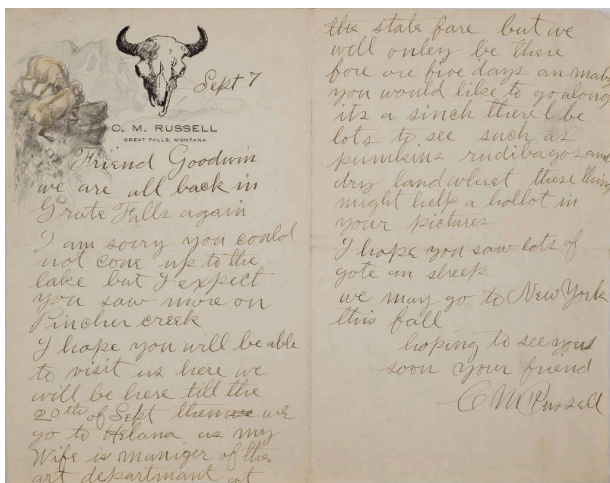 Sept 7
C. M. RUSSELL
GREAT FALLS, MONTANA
Friend Goodwin
we are all back in
Grate Falls again
I am sorry you could
not come up to the
lake but I expect
you saw more on
Pincher creek
I hope you will be able
to visit us here we
will be here till the
20th of Sept then we we
go to Helana as my
Wife is maniger of the
art departmant at
the state fare but we
will onley be there
fore are five days an maby
you would like to go along
its a sinch therel be
lots to see such as
pumkins rudibagos and
dry land wheet these thing
might help a hollot in
your pictures
I hope you saw lots of
gote an sheep
we may go to New York
this fall
hoping to see you
soon your friend
C M Russell